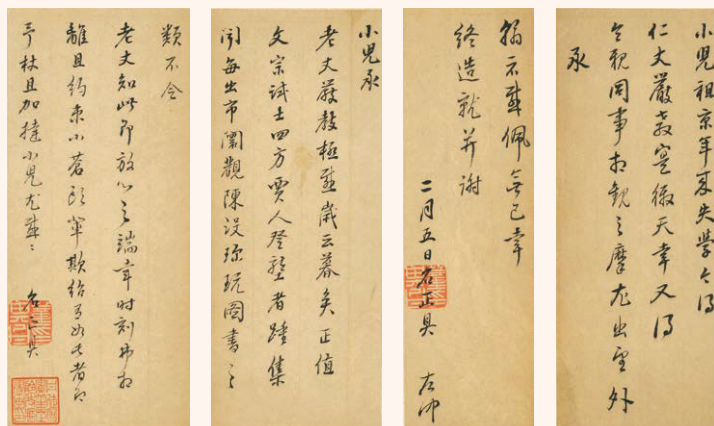 小児祖京年來失學今得
仁丈嚴教寔徼天幸又得
令親同事相觀之摩尤出望外
承
翰示感佩無已幸
終造就并謝
二月五日名正具 左沖
小児承
老丈嚴教極感歲云暮矣正值
文宗試士四方賈人登壟者踵集
聞每出市闤觀陳設珍玩圖書之
類不令
老丈知此即放心之端幸時刻弗相
離且約束小蒼頭輩欺紿有如此者即
予杖且加撻小児尤感〻
名正具